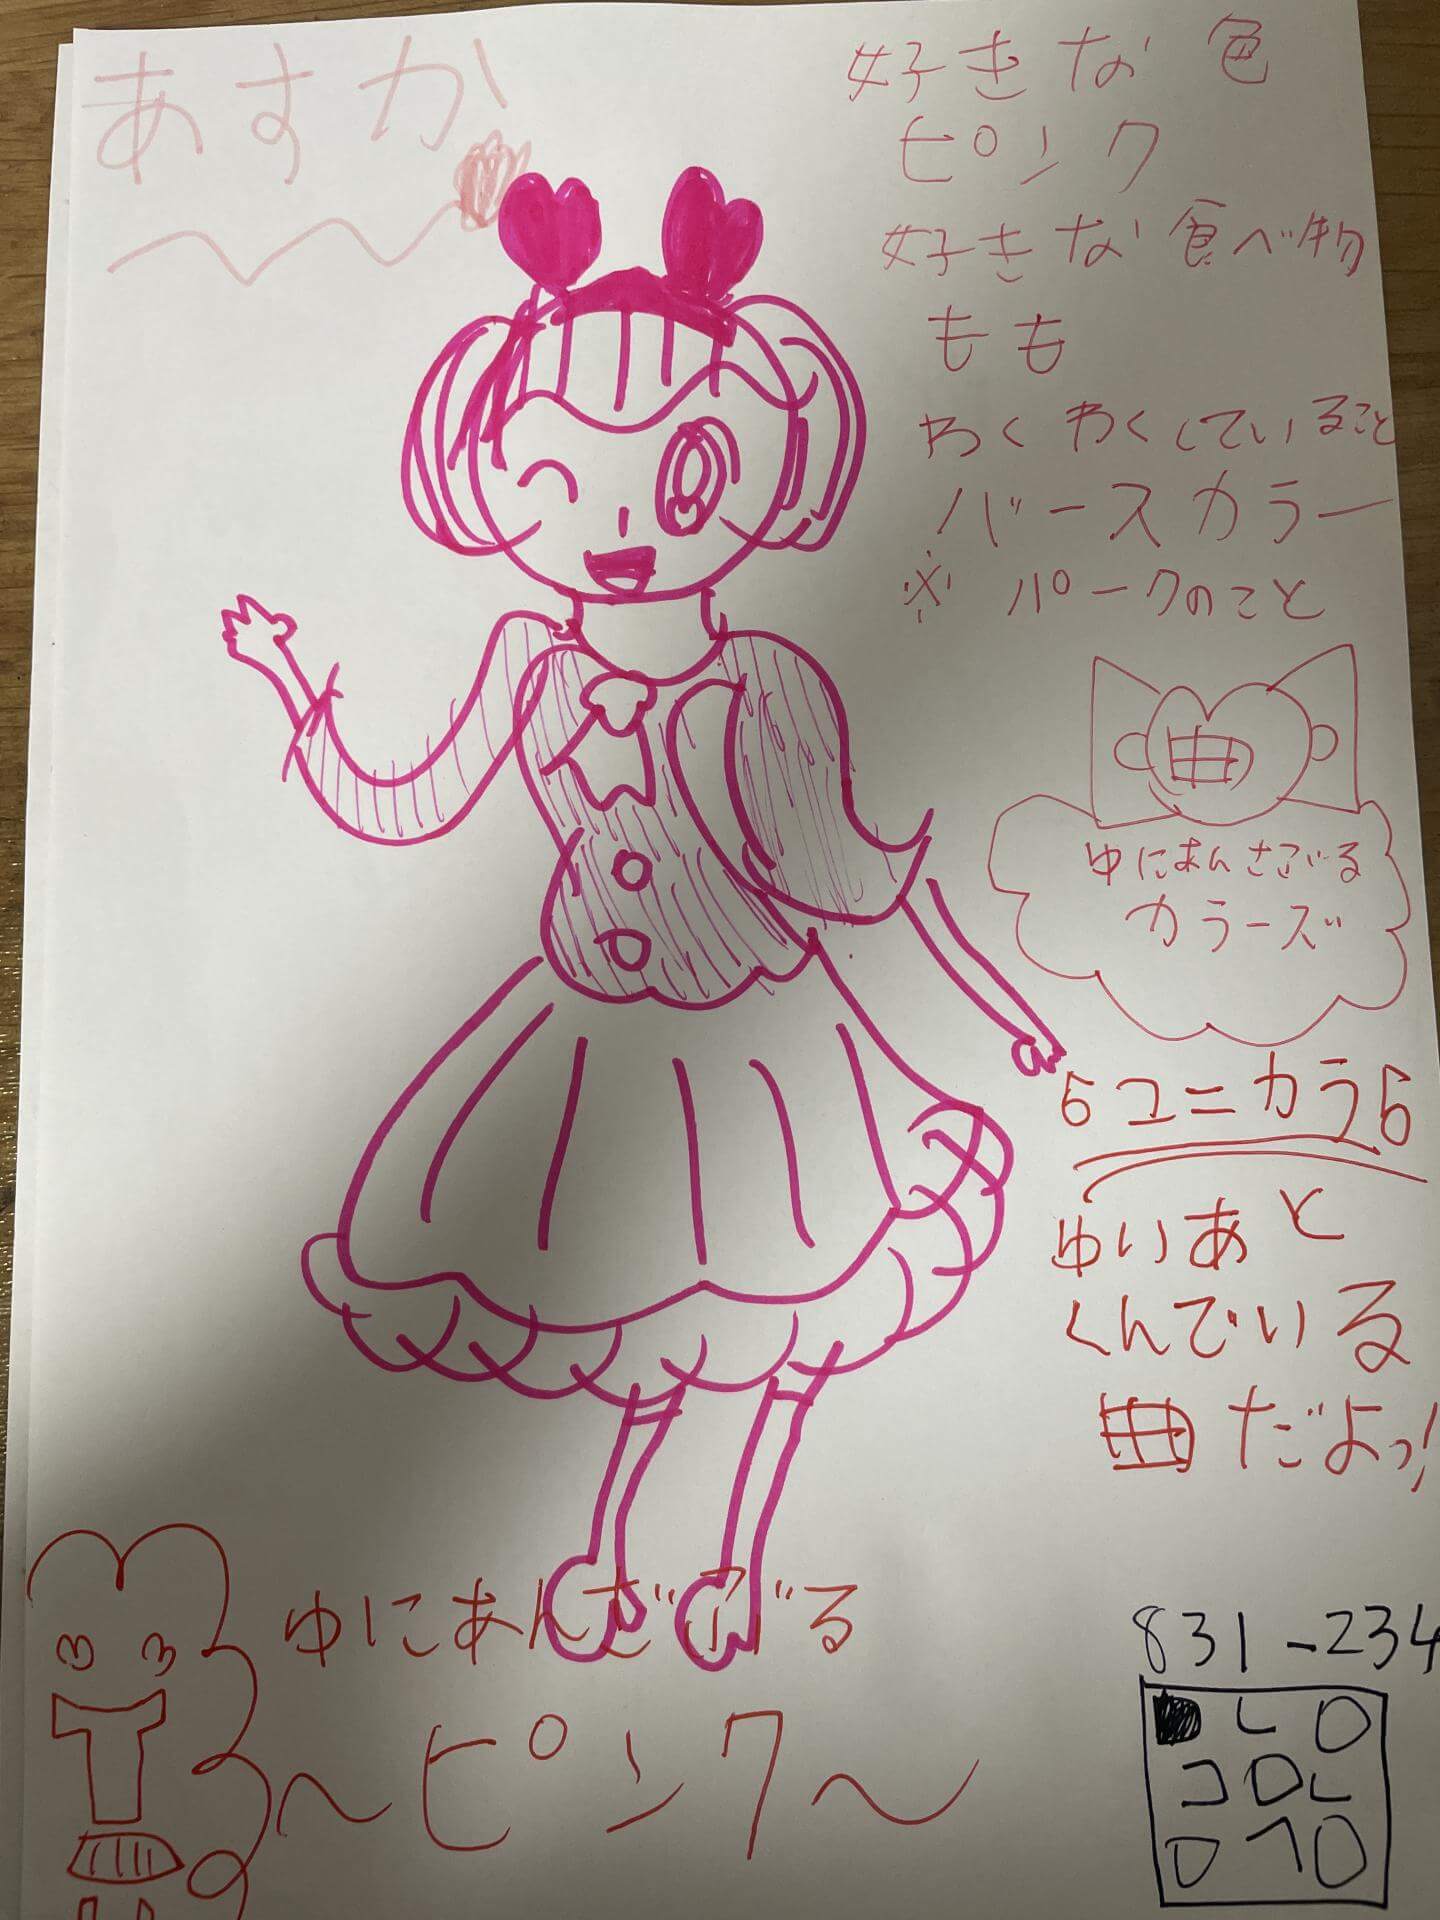 あすか
好きな色
ピンク
好きな食べ物
もも
わくわくしていること
バースカラー
※ パークのこと
曲
ゆにあんさぁいる
カラーズ
ユニカラ
ゆいあと
くんでいる
曲だよっ!
ゆにあんざぁびる
~ピンク~
831-234